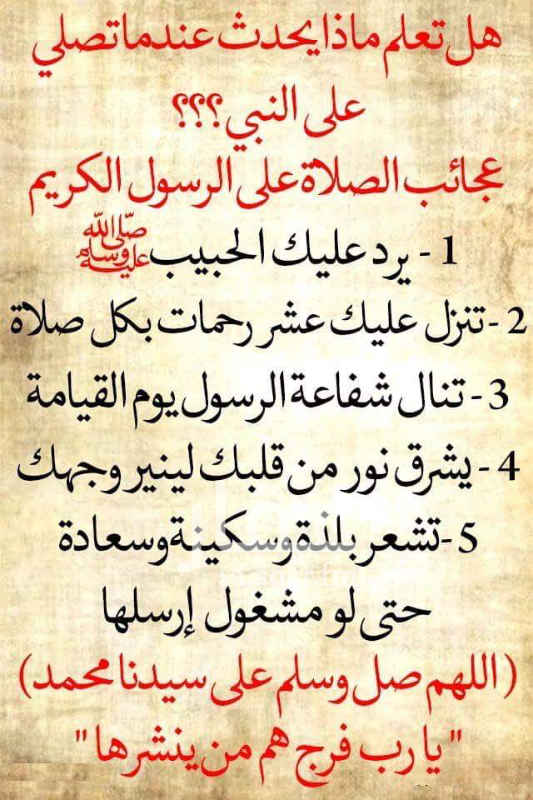 هل تعلم ماذا يحدث عندما تصلي
على النبي ؟؟؟
عجائب الصلاة على الرسول الكريم
1 - يرد عليك الحبيب ﷺ
2 - تنزل عليك عشر رحمات بكل صلاة
3 - تنال شفاعة الرسول يوم القيامة
4 - يشرق نور من قلبك لينير وجهك
5 - تشعر بلذة وسكينة وسعادة
حتى لو مشغول إرسلها
( اللهم صل وسلم على سيدنا محمد )
" يا رب فرج هم من ينشرها "